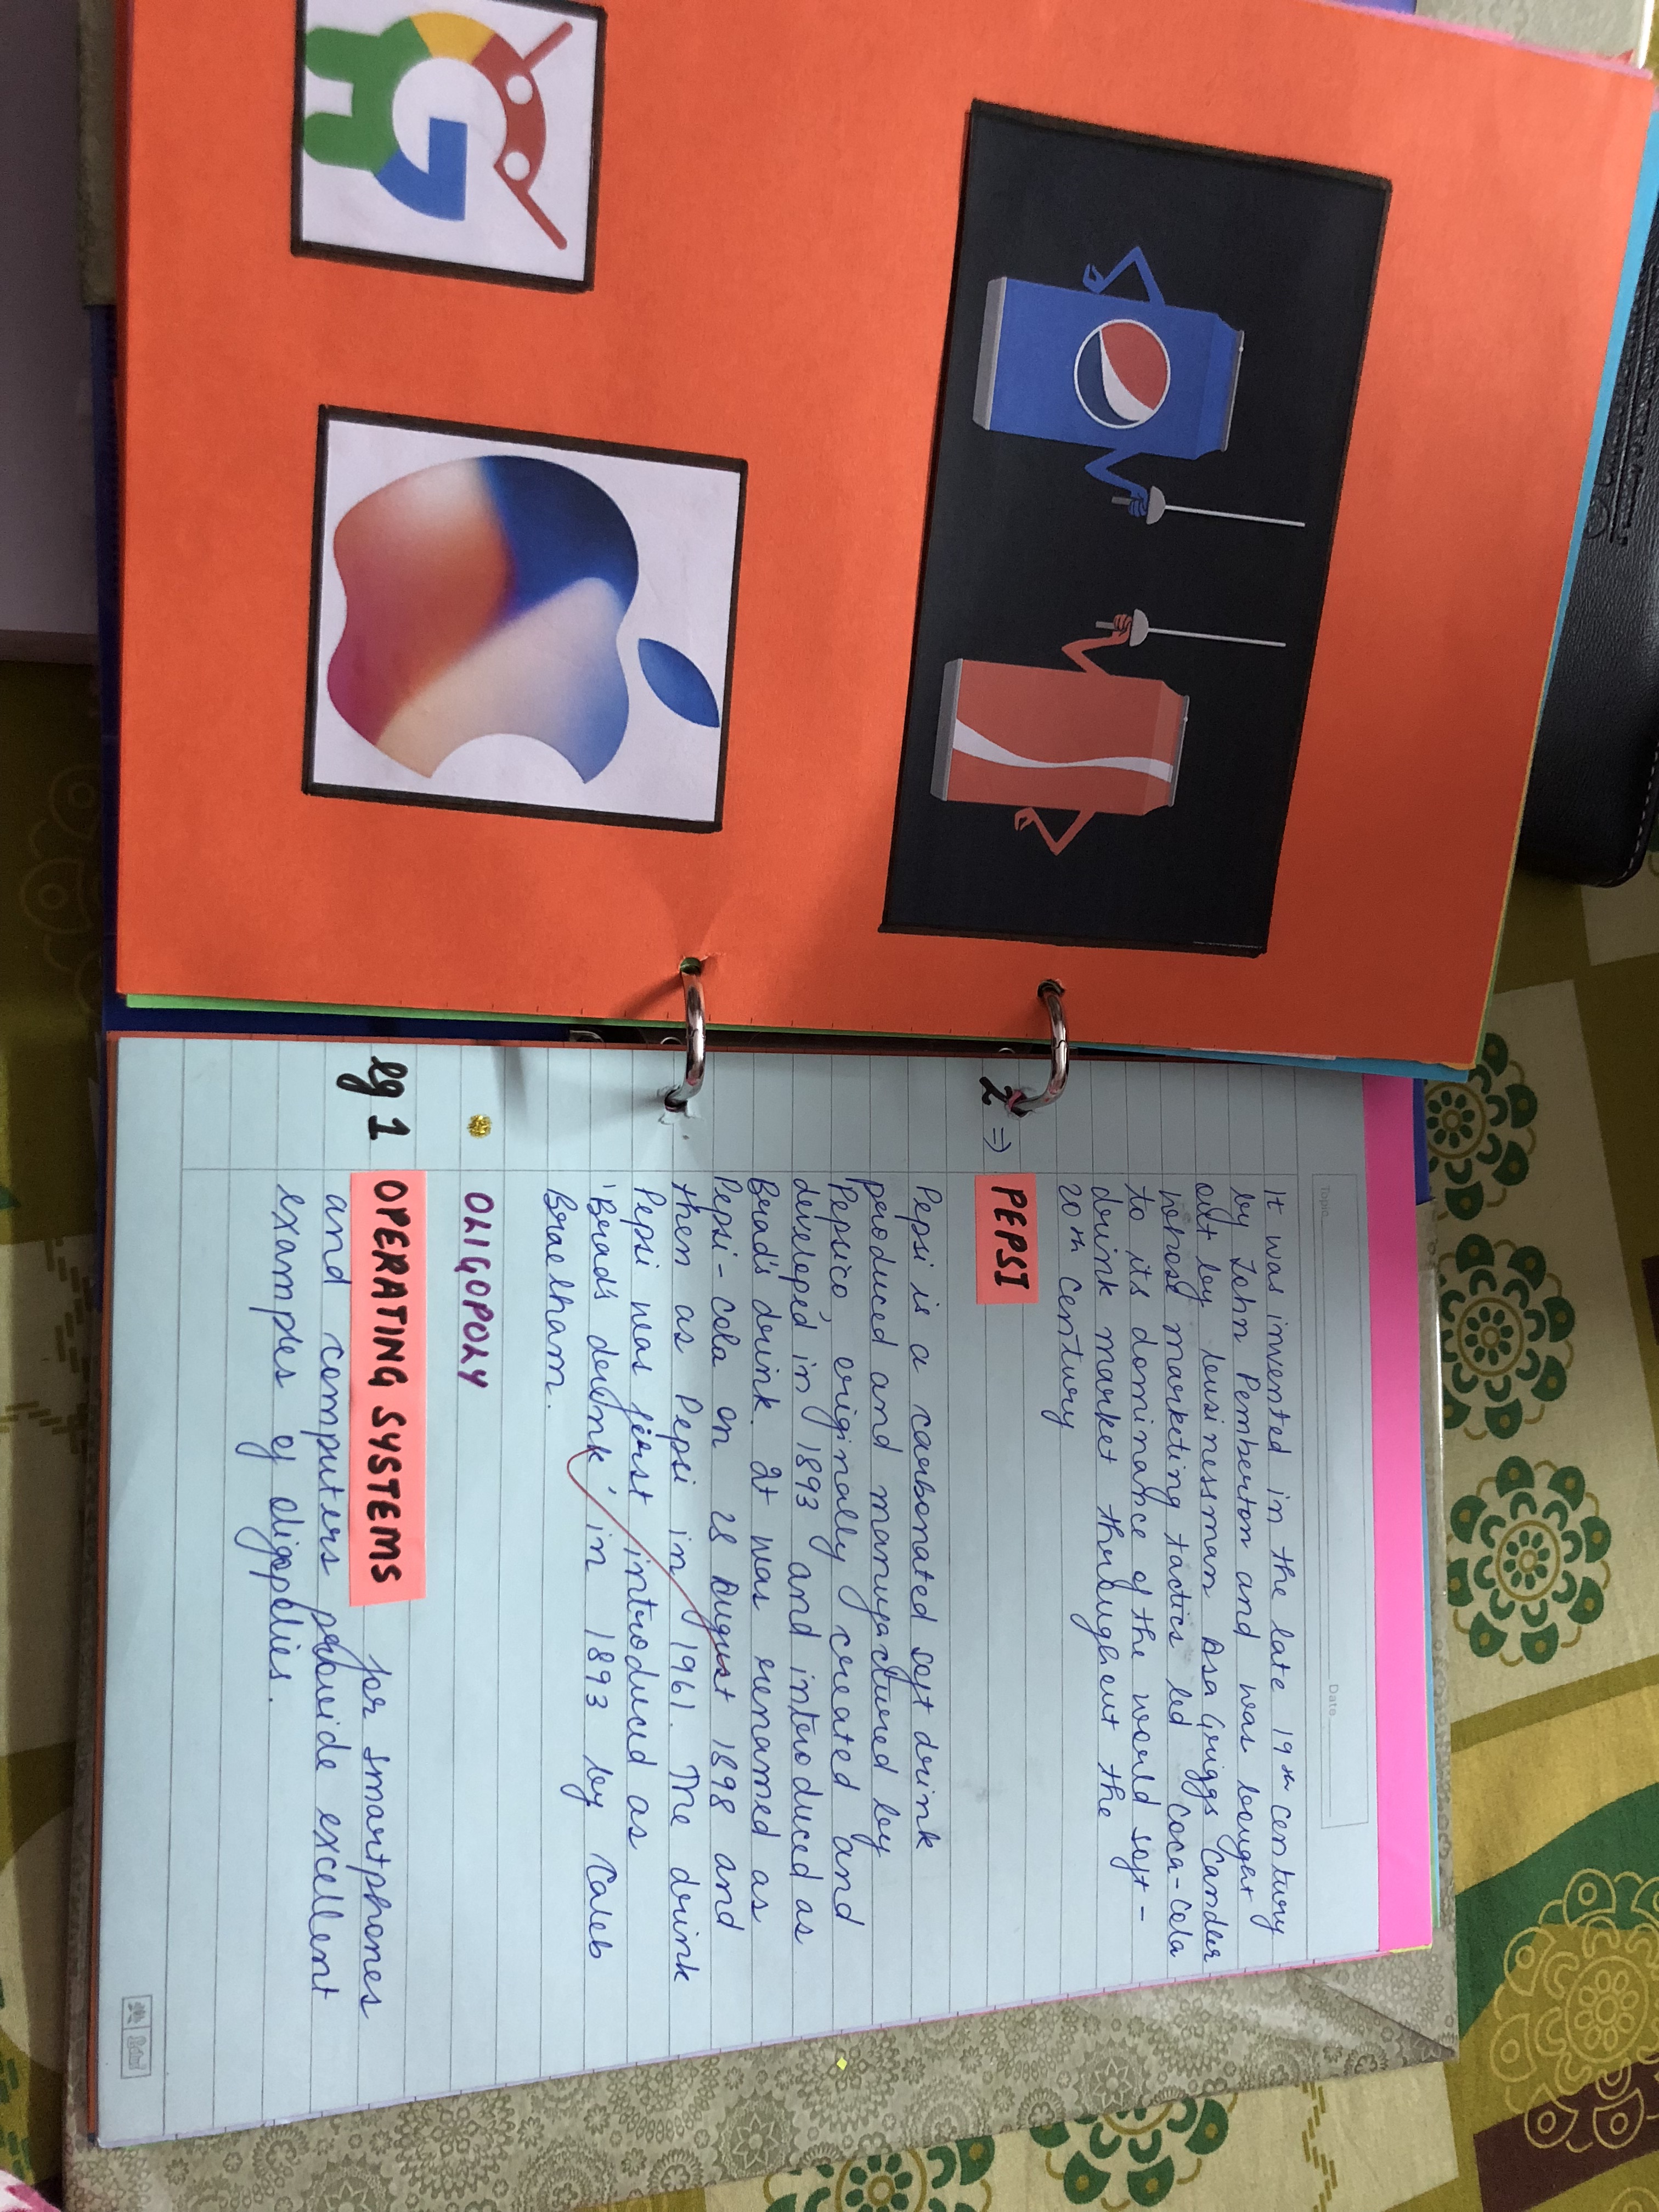 Topic
Date
It was invented in the late 19th century
by John Pemberton and was bought
out by businessman Asa Griggs Candler
whose marketing tactics led Coca-Cola
to its dominance of the world soft-
drink market throughout the
20th century
2 ⇒ PEPSI
Pepsi is a carbonated soft drink
produced and manufactured by
Pepsico, originally created and
developed in 1893 and introduced as
Brad's drink. It was renamed as
Pepsi-cola on 28 August 1898 and
then as Pepsi in 1961. The drink
Pepsi was first introduced as
'Brad's drink' in 1893 by Caleb
Braelham.
• OLIGOPOLY
eg 1 OPERATING SYSTEMS for smartphones
and computers provide excellent
examples of oligoplies.